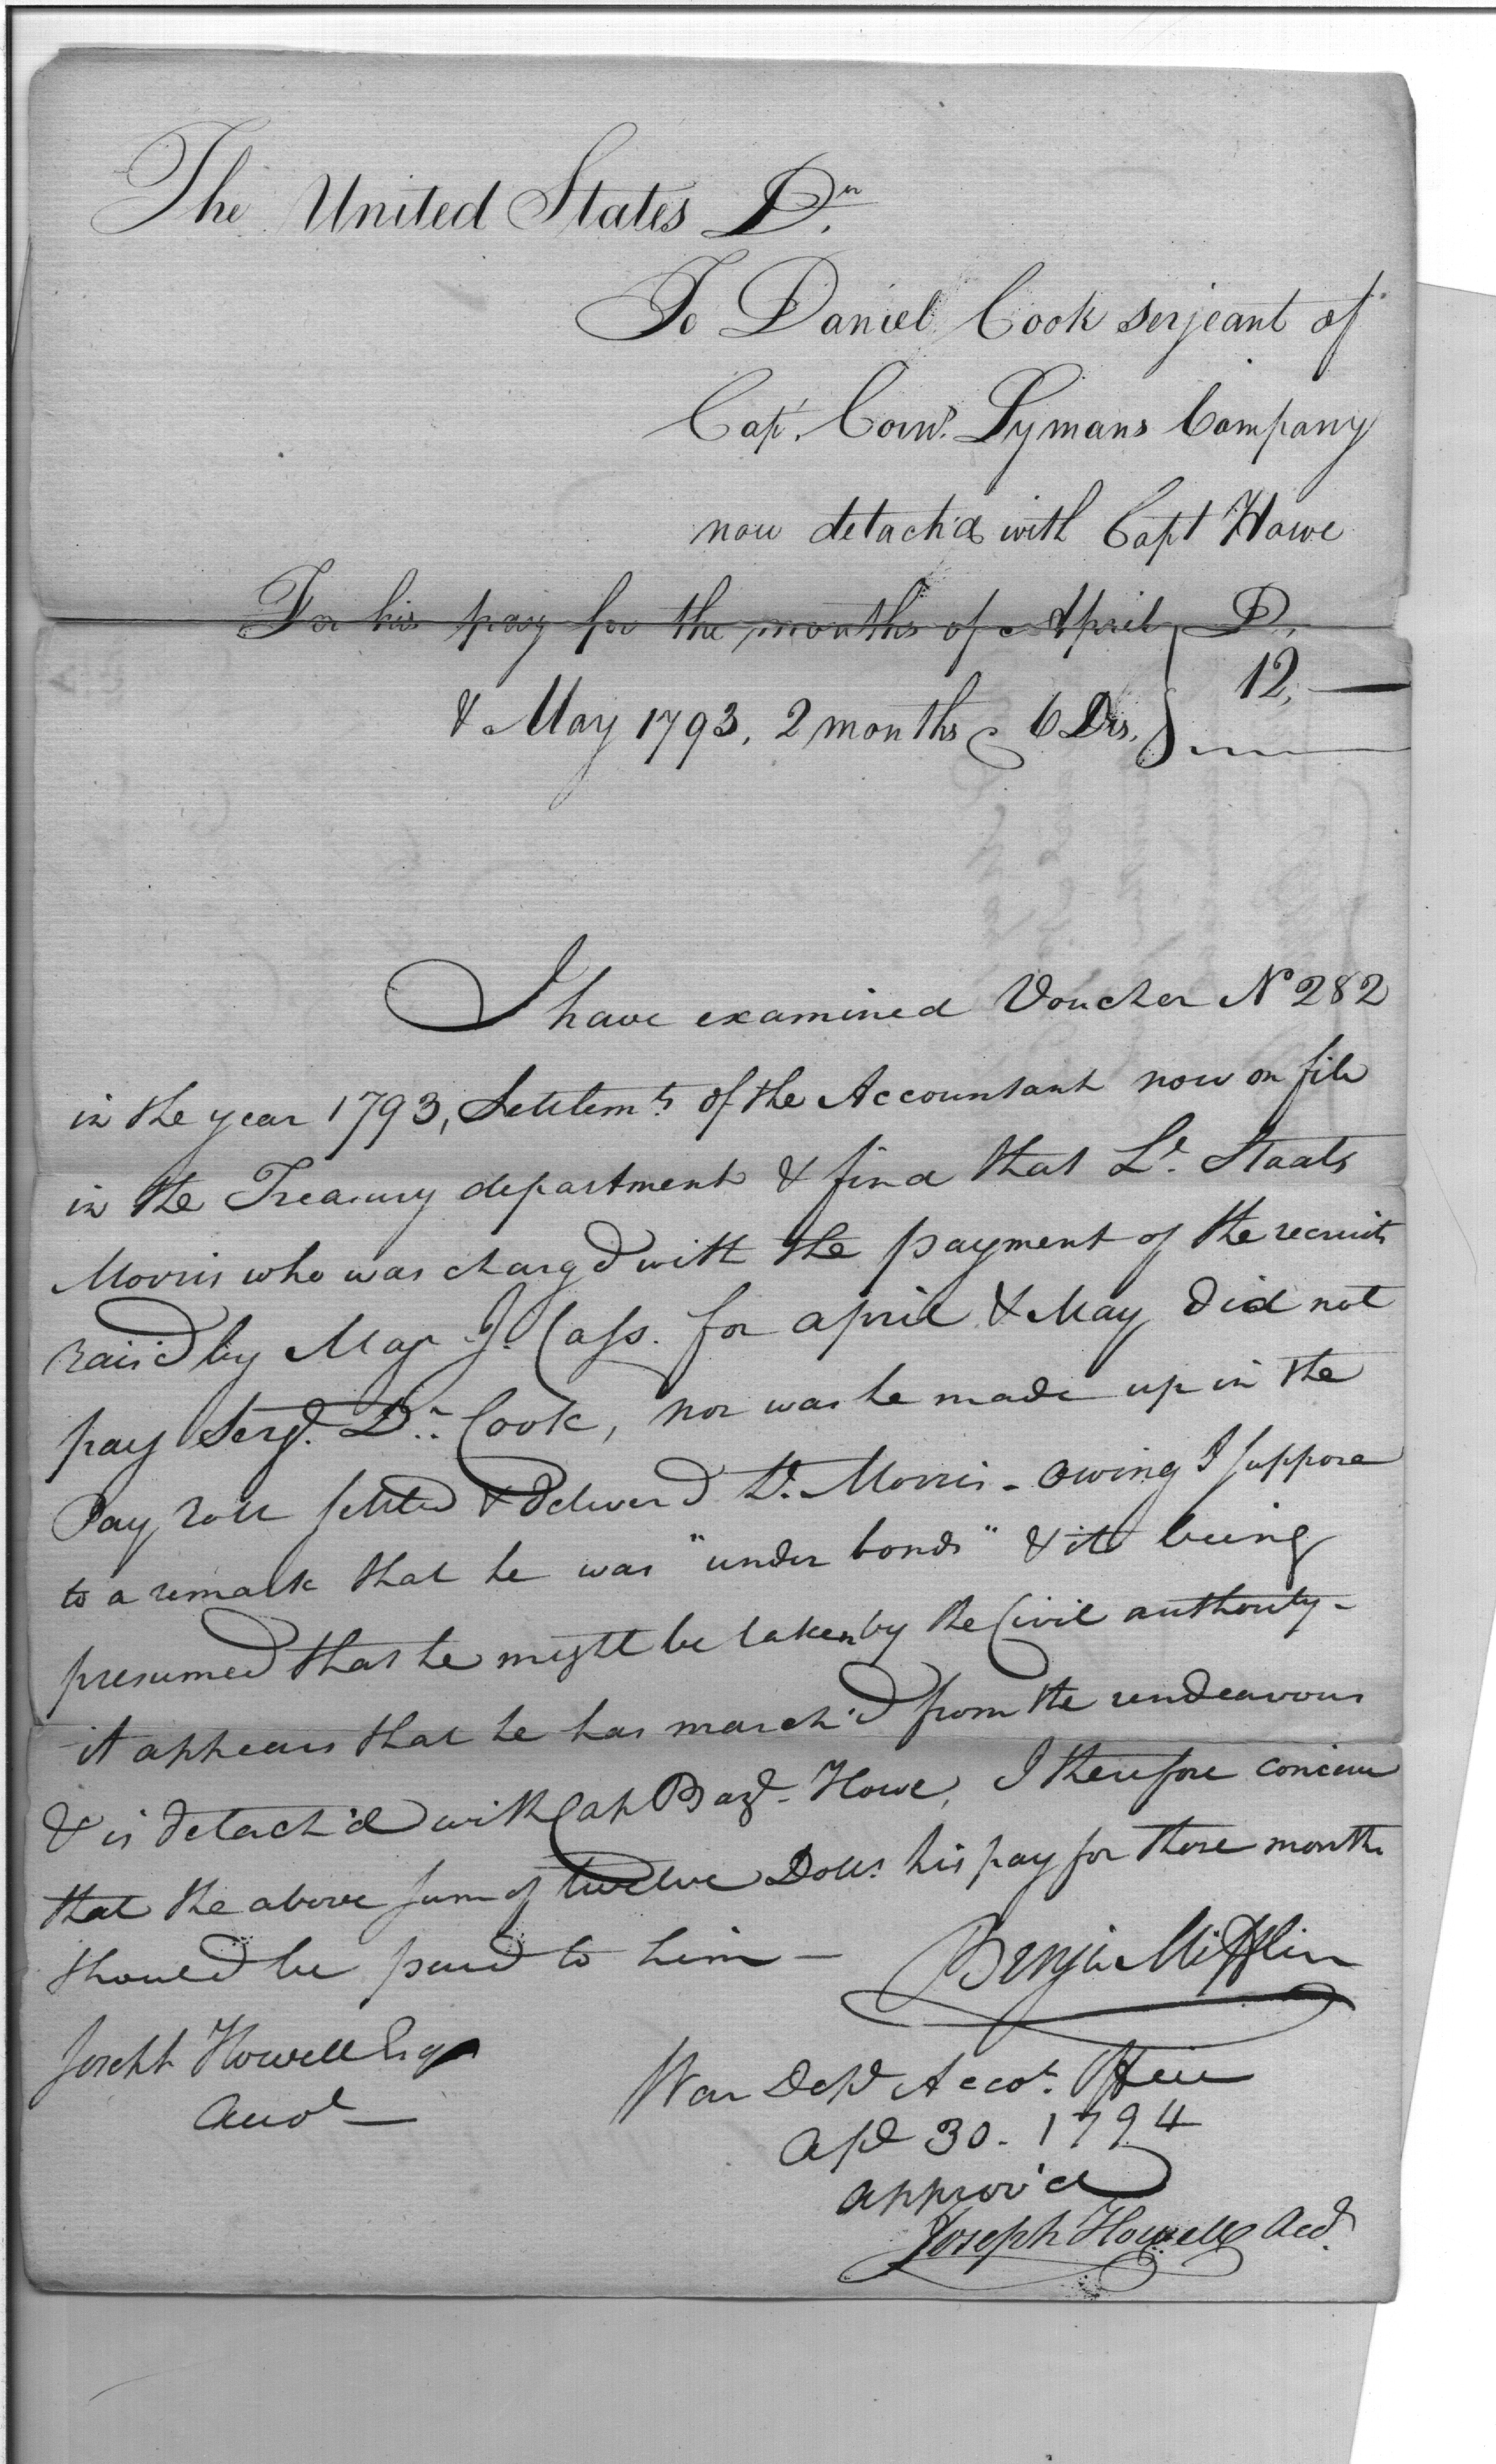 The United States Dr.
To Daniel Cook serjeant of
Capt. Corns. Lymans Company
now detach'd with Capt Howe
For his pay for the months of April } D.
& May 1793, 2 months @ 6 Drs. } 12,—
I have examined Voucher No 282
in the year 1793, Settlemts of the Accountant now on file
in the Treasury department & find that Lt. Staats
Morris who was charg'd with the payment of the recruits
rais'd by Maj J. Cass. for april & May did not
pay Serjt. Dn. Cook, nor was he made up in the
Pay roll settled & deliver'd Lt. Morris - owing I suppose
to a remark that he was "under bonds" & it being
presumed that he might be taken by the Civil authority -
it appears that he has march'd from the rendeavous
& is detach'd with Cap Bazl. Howe, I therefore conceive
that the above sum of twelve Dolls. his pay for those months
should be paid to him —
Benjn Mifflin
Joseph Howell Esqr
Acct —
War Dept Accots. Office
Apl 30. 1794
approv'd
Joseph Howell Acct.